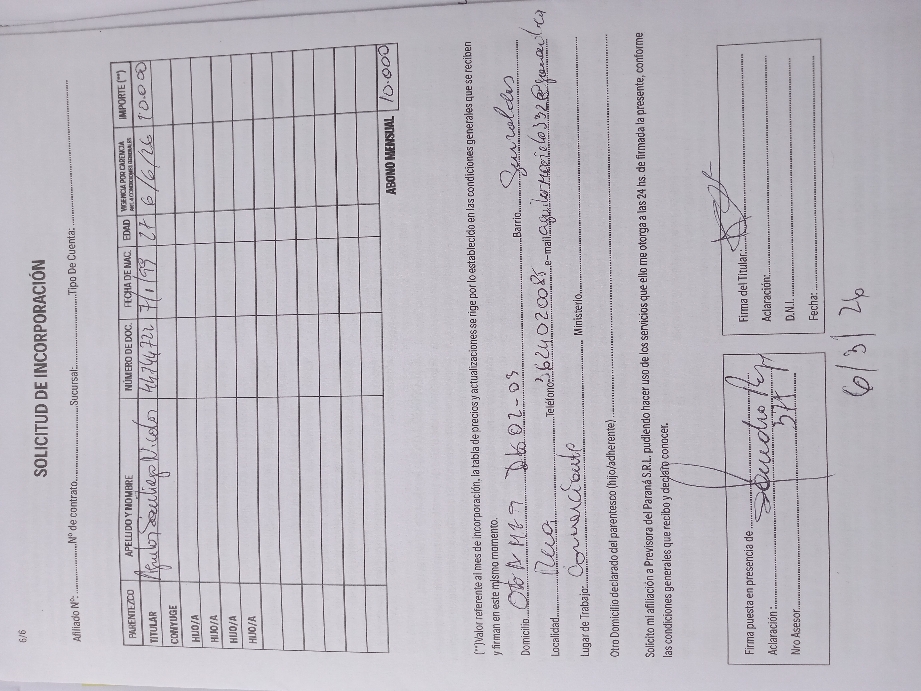 6/6
SOLICITUD DE INCORPORACIÓN
Afiliado Nº: Nº de contrato Sucursal: Tipo De Cuenta:
PARENTEZCO APELLIDO Y NOMBRE NÚMERO DE DOC. FECHA DE NAC. EDAD VIGENCIA POR CARENCIA IMPORTE (**)
TITULAR Santiago Nicolas 44744722 7/1/99 27 6/6/26 10.000
CONYUGE
HIJO/A
HIJO/A
HIJO/A
HIJO/A
ABONO MENSUAL 10.000
(**)Valor referente al mes de incorporación, la tabla de precios y actualizaciones se rige por lo establecido en las condiciones generales que se reciben
y firman en este mismo momento.
Domicilio Dto 02-03 Barrio
Localidad Teléfono: 3624020085 e-mail
Lugar de Trabajo: Comerciante Ministerio
Otro Domicilio declarado del parentesco (hijo/adherente)
Solicito mi afiliación a Previsora del Paraná S.R.L. pudiendo hacer uso de los servicios que ello me otorga a las 24 hs. de firmada la presente, conforme
las condiciones generales que recibo y declaro conocer.
Firma puesta en presencia de
Aclaración:
Nro Asesor
Firma del Titular:
Aclaración:
D.N.I.
Fecha:
6/3/26